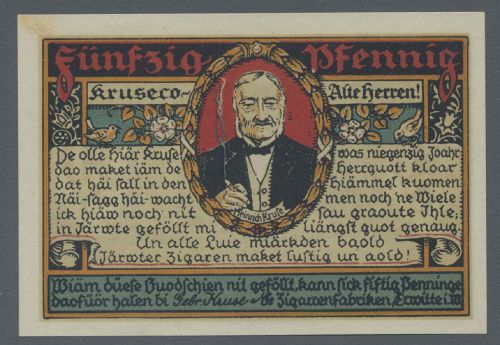 Fünfzig Pfennig
Kruseco- Alte Herren!
De olle hiär Kruse was niegenzig Joahr:
dao maket iäm de Herrguott kloar
dat häi sall in den Hiämmel kuomen
Näi-sagg häi-wacht men noch 'ne Wiele
ick hiäw noch nit sau graoute Ihle;
in Järwte geföllt mi längst guot genaug.
Un alle Luie miärkden baold
Järwter Zigaren maket lustig un aold!
Heinrich Kruse
Wiäm düese Guodschien nit geföllt, kann sick fiftig Penninge
daofüör halen bi Gebr. Kruse Zigarrenfabriken, Erwitte i.W.